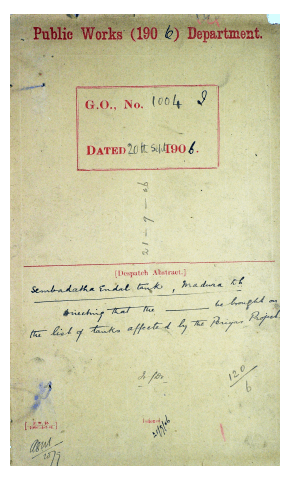 Public Works (1906) Department.
G.O., No. 1004 I
DATED 20th Sept 1906.
21-9-06
[Despatch Abstract.]
Sembadatha Endal tank, Madura tk
Directing that the ——— be brought on
the list of tanks affected by the Periyar Project
120
6
21/9/06
20/9